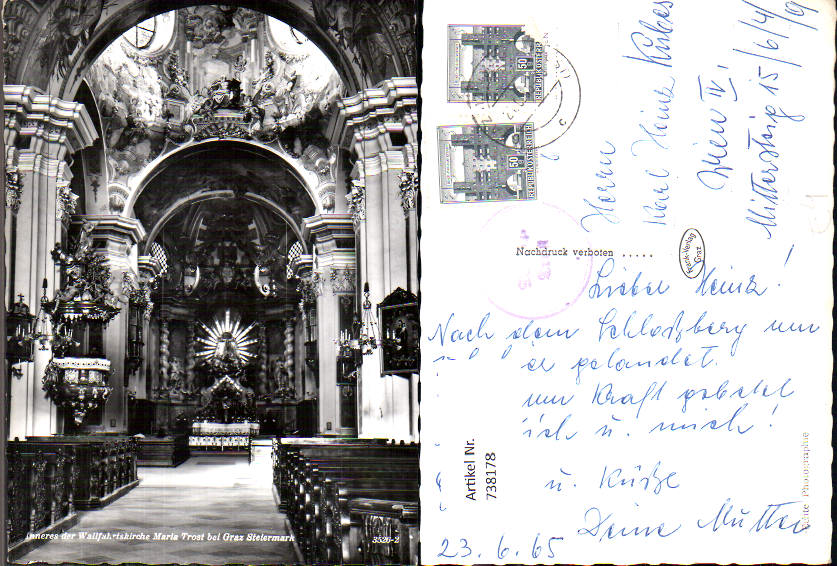 Inneres der Wallfahrtskirche Maria Trost bei Graz Steiermark
3520-2
50
REPUBLIK ÖSTERREICH
50
REPUBLIK ÖSTERREICH
Herrn
Karl Heinz Kubes
Wien IV.
Mittersteig 15/6/4/19
Nachdruck verboten .....
Frank-Verlag
Graz
Lieber Heinz!
Nach dem Schloßberg nun
gelandet.
um Kraft
ich u. mich!
u. Küsse
Deine Mutter
23. 6. 65
Artikel Nr.
738178
Echte Photographie